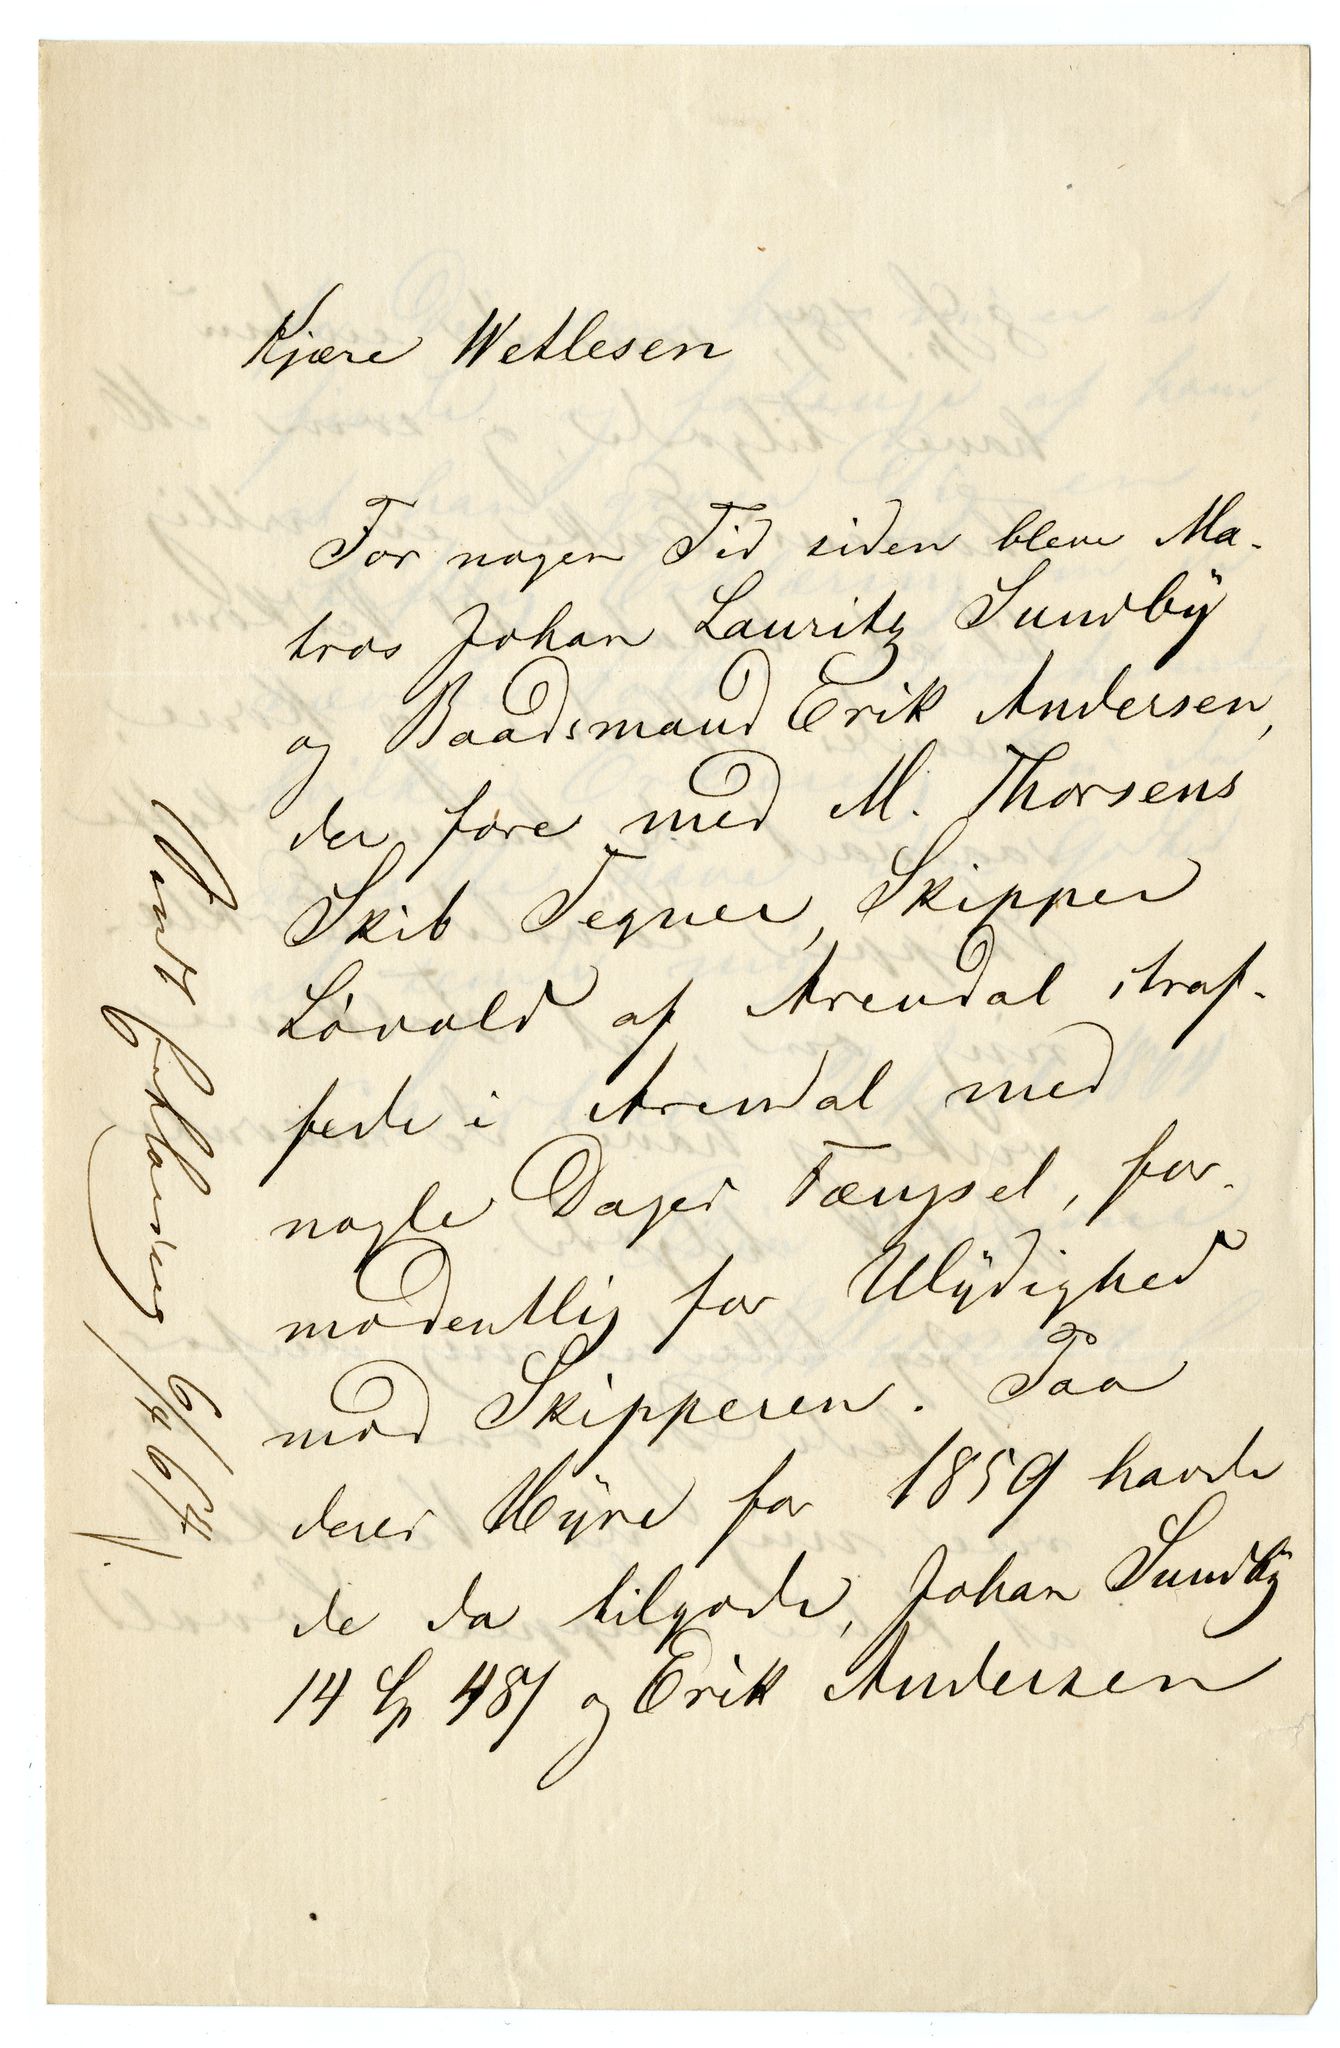 Kjære Wetlesen
For nogen Tid siden bleve Ma-
tros Johan Lauritz Sundbÿ
og Baadsmand Erik Andersen,
der fore med M. Thorsens
Skib Tegner, Skipper
Lövold af Arendal straf-
fede i Arendal med
nogle Dages Fængsel, for-
modentlig for Ulÿdighed
mod Skipperen. Paa
deres Hÿre for 1859 havde
de da tilgode, Johan Sundbÿ
14 Sp 48/ og Erik Andersen
6/4 64